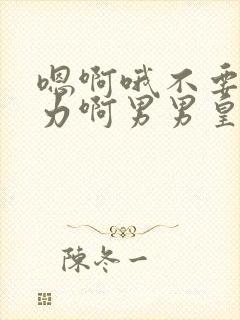 嗯啊哦不要
力啊男男皇
陳冬一